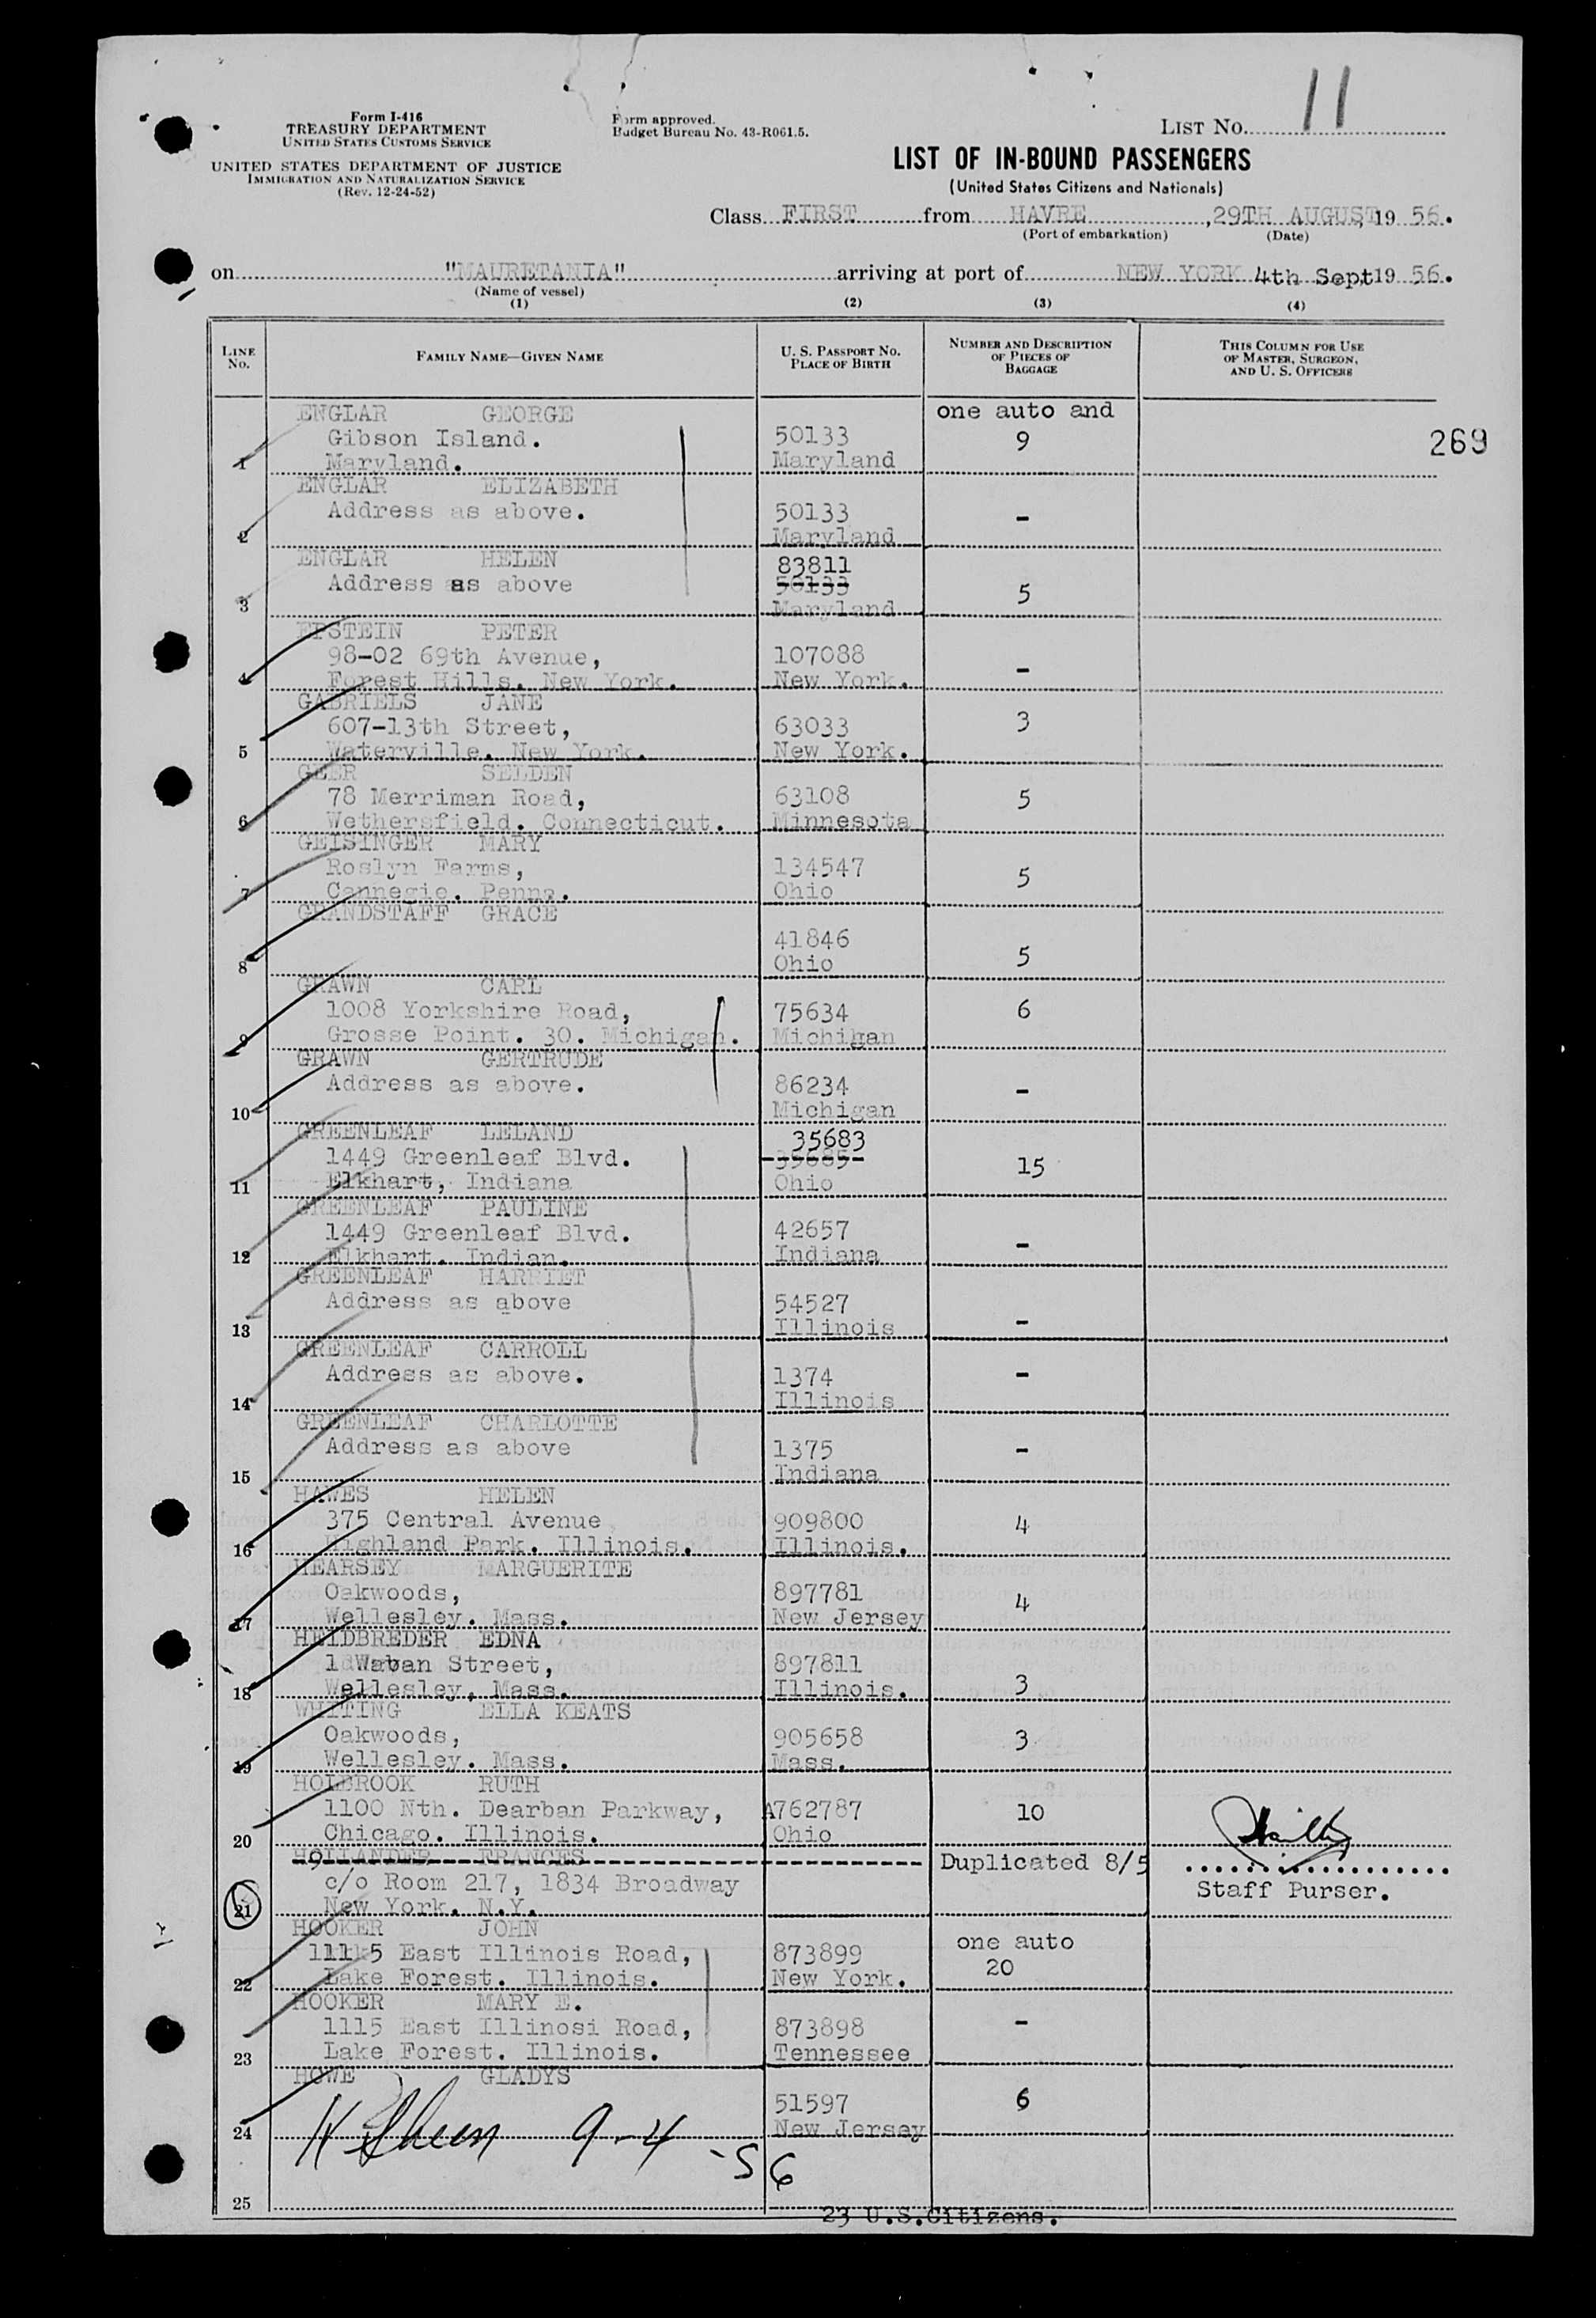 Form I-416
TREASURY DEPARTMENT
UNITED STATES CUSTOMS SERVICE
UNITED STATES DEPARTMENT OF JUSTICE
IMMIGRATION AND NATURALIZATION SERVICE
(Rev. 12-24-52)
Form approved.
Budget Bureau No. 43-R061.5.
LIST No. 11
LIST OF IN-BOUND PASSENGERS
(United States Citizens and Nationals)
Class FIRST from HAVRE, 29TH AUGUST, 19 56.
(Port of embarkation) (Date)
on "MAURETANIA" arriving at port of NEW YORK 4th Sept 19 56.
(Name of vessel)
(1) (2) (3) (4)
LINE No. FAMILY NAME—GIVEN NAME U. S. PASSPORT NO. PLACE OF BIRTH NUMBER AND DESCRIPTION OF PIECES OF BAGGAGE THIS COLUMN FOR USE OF MASTER, SURGEON, AND U. S. OFFICERS
ENGLAR GEORGE one auto and
Gibson Island. 50133 9 269
1 Maryland. Maryland
ENGLAR ELIZABETH
Address as above. 50133 -
2 Maryland
ENGLAR HELEN 83811
Address as above 50133 5
3 Maryland
EPSTEIN PETER
98-02 69th Avenue, 107088 -
4 Forest Hills. New York. New York.
GABRIELS JANE
607-13th Street, 63033 3
5 Waterville. New York. New York.
GEER SELDEN
78 Merriman Road, 63108 5
6 Wethersfield. Connecticut. Minnesota
GEISINGER MARY
Roslyn Farms, 134547 5
7 Cannegie. Penna. Ohio
GRANDSTAFF GRACE
41846 5
8 Ohio
GRAWN CARL
1008 Yorkshire Road, 75634 6
9 Grosse Point. 30. Michigan. Michigan
GRAWN GERTRUDE
Address as above. 86234 -
10 Michigan
GREENLEAF LELAND 35683
1449 Greenleaf Blvd. 35685 15
11 Elkhart, Indiana Ohio
GREENLEAF PAULINE
1449 Greenleaf Blvd. 42657 -
12 Elkhart. Indian. Indiana
GREENLEAF HARRIET
Address as above 54527 -
13 Illinois
GREENLEAF CARROLL
Address as above. 1374 -
14 Illinois
GREENLEAF CHARLOTTE
Address as above 1375 -
15 Indiana
HAWES HELEN
375 Central Avenue 909800 4
16 Highland Park. Illinois. Illinois.
HEARSEY MARGUERITE
Oakwoods, 897781 4
17 Wellesley. Mass. New Jersey
HEIDBREDER EDNA
1 Waban Street, 897811 3
18 Wellesley, Mass. Illinois.
WHITING ELLA KEATS
Oakwoods, 905658 3
19 Wellesley. Mass. Mass.
HOLBROOK RUTH
1100 Nth. Dearban Parkway, A762787 10
20 Chicago. Illinois. Ohio
HOLLANDER FRANCES Duplicated 8/5
c/o Room 217, 1834 Broadway Staff Purser.
21 New York. N.Y.
HOOKER JOHN one auto
1115 East Illinois Road, 873899 20
22 Lake Forest. Illinois. New York.
HOOKER MARY E.
1115 East Illinosi Road, 873898 -
23 Lake Forest. Illinois. Tennessee
HOWE GLADYS
51597 6
24 New Jersey
9-4-56
25
23 U.S.Citizens.